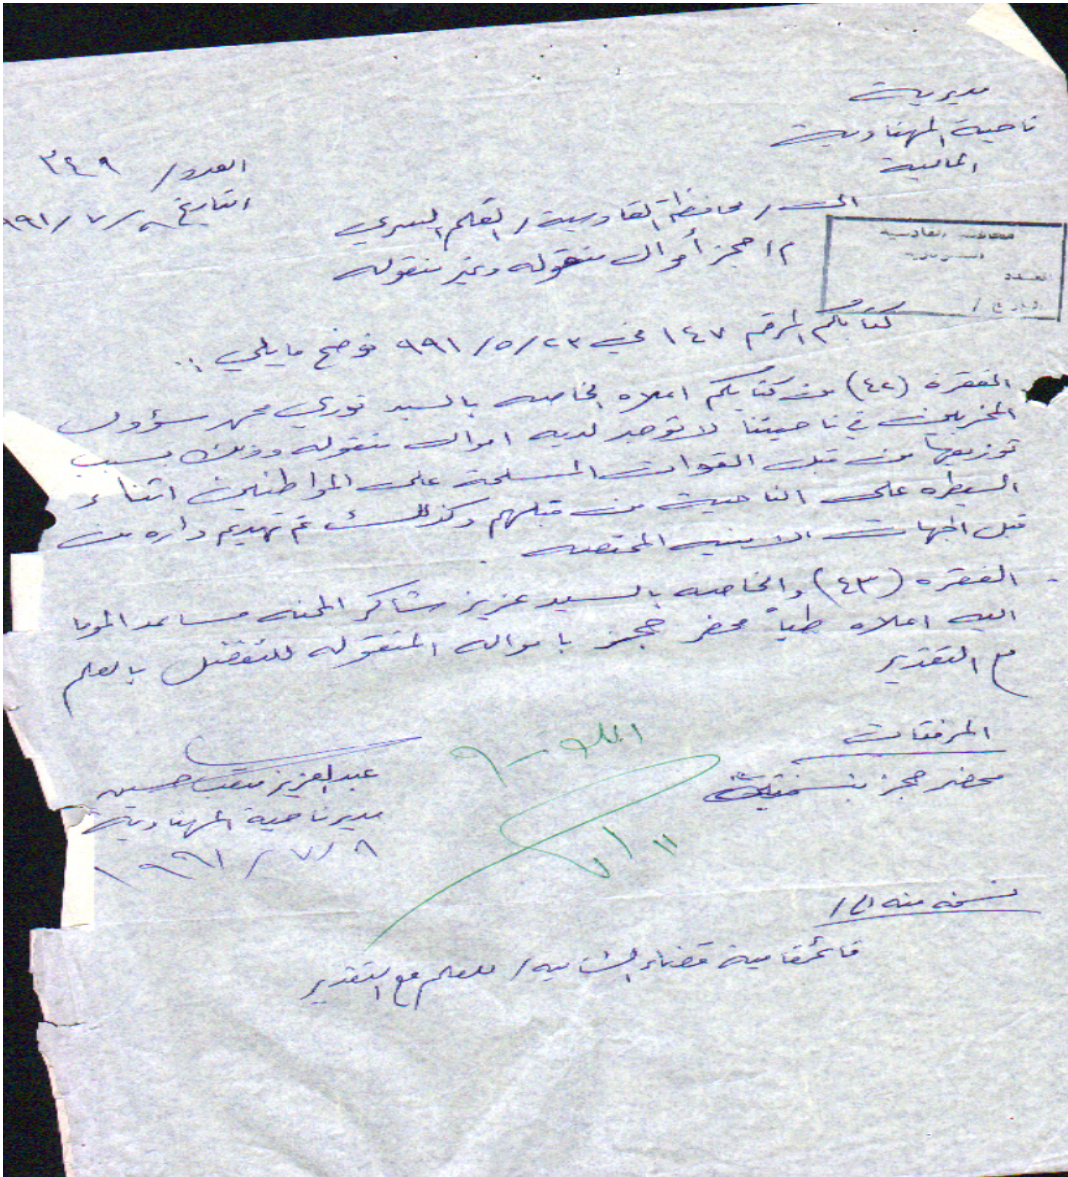 مديرية
ناحية المهناوية
المالية
العدد / ٣٤٩
التاريخ ٨ / ٧ / ٩٩١
الى / محافظة القادسية / القلم السري
م / حجز أموال منقوله وغير منقوله
محافظة القادسية
العدد
التاريخ /
كتابكم المرقم ١٤٧ في ٢٣ / ٥ / ٩٩١ نوضح مايلي :.
الفقرة (٤٢) من كتابكم اعلاه الخاصه بالسيد نوري محمد سؤول
المخربين في ناحيتنا لا توجد لديه اموال منقوله وذلك بسبب
توزيعها من قبل القوات المسلحة على المواطنين اثناء
السيطره على الناحية من قبلهم وكذلك تم تهديم داره من
قبل الجهات الامنيه المختصه .
الفقره (٤٣) والخاصه بالسيد عزيز شاكر المحنه مساعد الموما
اليه اعلاه طياً محضر حجز بامواله المنقوله للتفضل بالعلم
مع التقدير
المرفقات
محضر حجز بنسختين
عبدالعزيز متعب حسين
مدير ناحية المهناوية
٨ / ٧ / ١٩٩١
١١ / ٧
نسخه منه الى /
قائمقامية قضاء الشاميه / للعلم مع التقدير